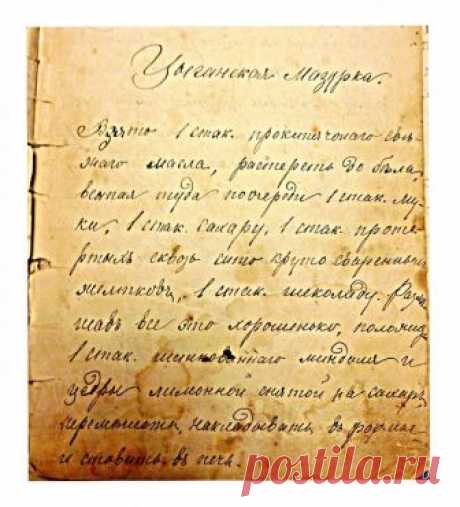 Цыганская Мазурка.
Взять 1 стак. прокипячонаго свѣ-
жаго масла, растереть до бѣла,
всыпая туда поочереди 1 стак. му-
ки, 1 стак. сахару, 1 стак. проте-
ртыхъ сквозь сито круто сваренныхъ
желтковъ, 1 стак. шеколаду. Разм
ѣшавъ все это хорошенько, положить
1 стак. шинкованнаго миндаля и
цедры лимонной снятой на сахаръ,
перемѣшать, накладывать въ формы
и ставить въ печь.
red.posti.ru